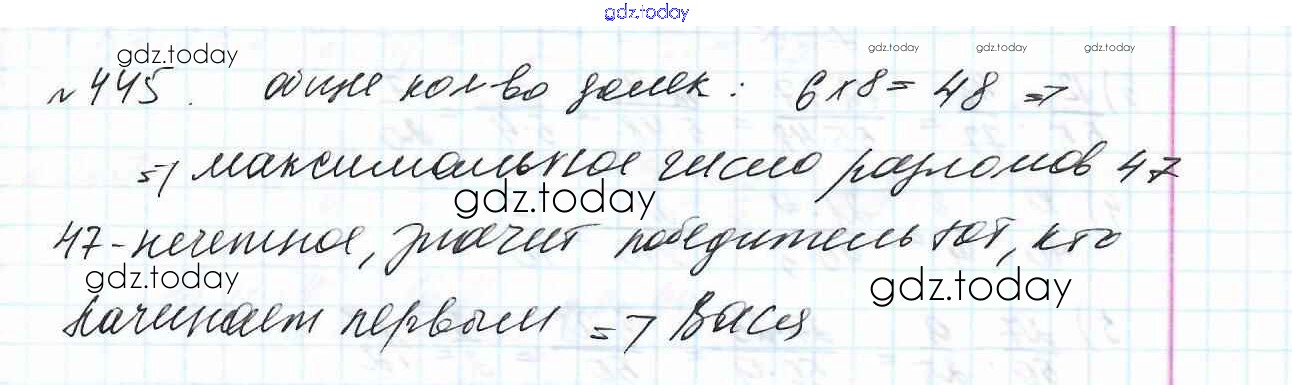 gdz.today
gdz.today gdz.today gdz.today gdz.today
№445. общее кол-во долек: 6х8=48 =>
=> максимальное число разломов 47
gdz.today
47-нечетное, значит победитель тот, кто
gdz.today gdz.today
начинает первым => Вася